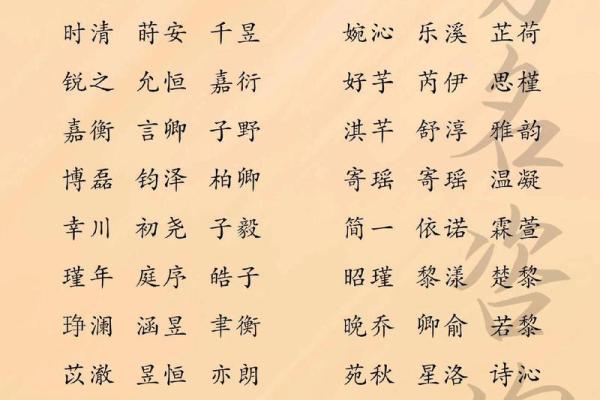 时清 莳安 千昱 婉沁 乐溪 芷荷
锐之 允恒 嘉衍 好芋 芮伊 思槿
嘉衡 言卿 子野 淇芊 舒淳 雅韵
博磊 钧泽 柏卿 寄瑶 寄瑶 温凝
幸川 初尧 子毅 简一 依诺 霖萱
瑾年 庭序 皓子 昭瑾 黎漾 楚黎
琤澜 涵昱 聿衡 晚乔 卿俞 若黎
苡澈 昱恒 亦朗 苑秋 星洛 诗沁
名